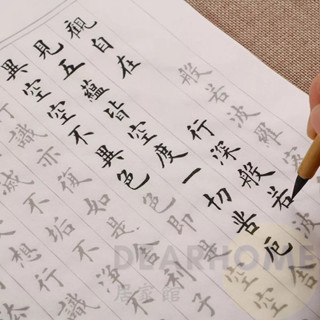 般若波羅
觀自在 行深般若波
見五蘊皆空度一切苦厄舍
異空空不異色 即是空空
行識亦復如是 利子
滅不垢不淨
想行識
DEARHOME
居家館